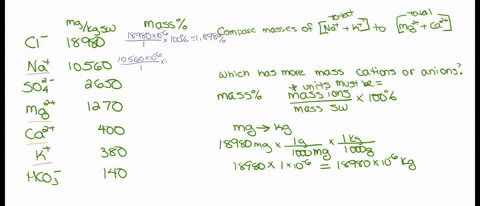 mg/kg sw mass%
Cl⁻ 18980 18980×10⁻⁶/1 × 100% = 1.898%
Na⁺ 10560 10560×10⁻⁶/1 ×
SO₄²⁻ 2650
Mg²⁺ 1270
Ca²⁺ 400
K⁺ 380
HCO₃⁻ 140
total total
Compare masses of [Na⁺ + K⁺] to [Mg²⁺ + Ca²⁺]
which has more mass cations or anions?
* units must be =
mass% mass ions/mass sw × 100%
mg → kg
18980 mg × 1g/1000mg × 1kg/1000g
18980 × 1×10⁻⁶ = 18980 ×10⁻⁶ kg